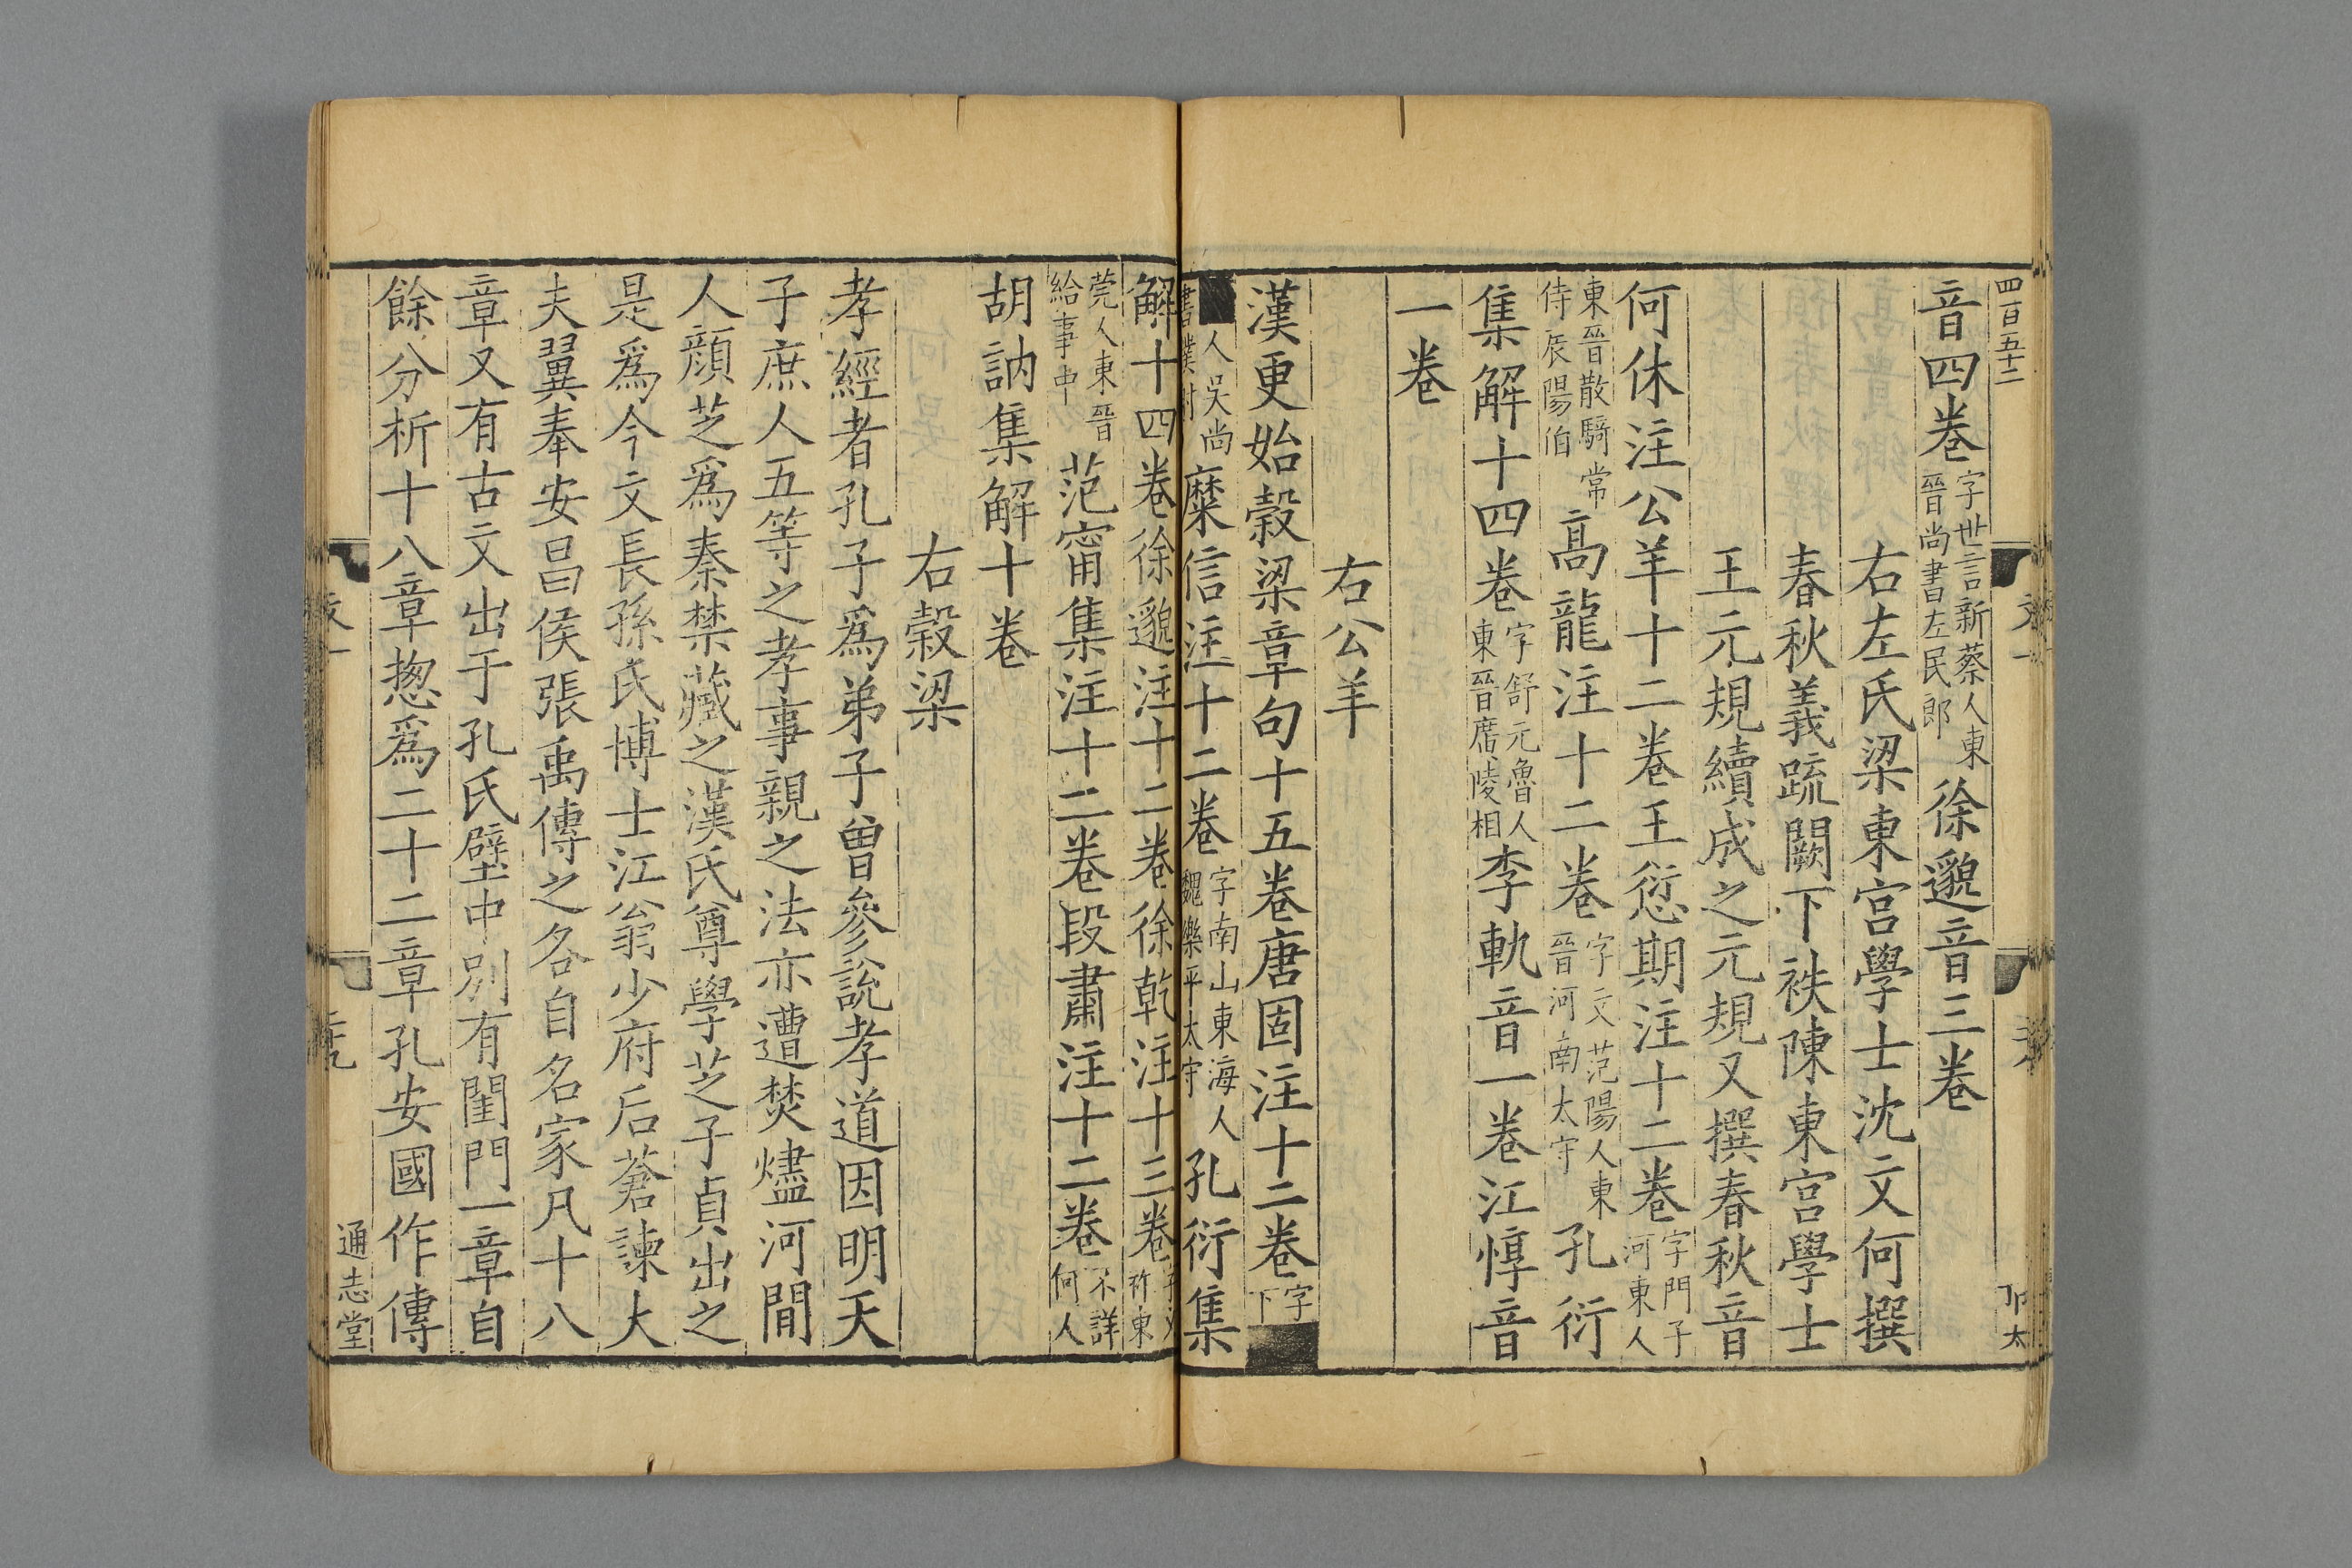 四百五十二
音四卷字世言新蔡人東晉尚書左民郎徐邈音三卷
右左氏梁東宮學士沈文何撰
春秋義疏闕下袟陳東宮學士
王元規續成之元規又撰春秋音
何休注公羊十二卷王愆期注十二卷字門子河東人
東晉散騎常侍辰陽伯高龍注十二卷字文范陽人東晉河南太守孔衍
集解十四卷字舒元魯人東晉廣陵相李軌音一卷江惇音
一卷
右公羊
漢更始穀梁章句十五卷唐固注十二卷字下
人吳尚書僕射糜信注十二卷字南山東海人魏樂平太守孔衍集
解十四卷徐邈注十二卷徐乾注十三卷祚東
莞人東晉給事中范甯集注十二卷段肅注十二卷不詳何人
胡訥集解十卷
右穀梁
孝經者孔子爲弟子曾參說孝道因明天
子庶人五等之孝事親之法亦遭焚燼河間
人顏芝爲秦禁藏之漢氏尊學芝子貞出之
是爲今文長孫氏博士江翁少府后蒼諫大
夫翼奉安昌侯張禹傳之各自名家凡十八
章又有古文出于孔氏壁中別有閨門一章自
餘分析十八章揔爲二十二章孔安國作傳
通志堂